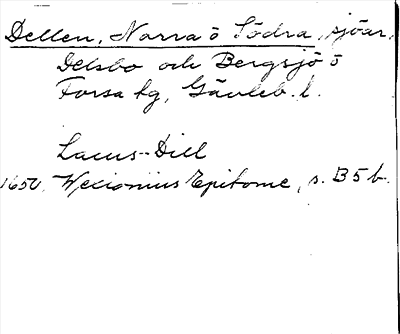 Dellen, Norra o Södra, sjöar,
Delsbo och Bergsjö o
Forsa kg, Gävleb. l.
Lacus-Dill
1650. Wexionius Epitome, s. B 5 b.